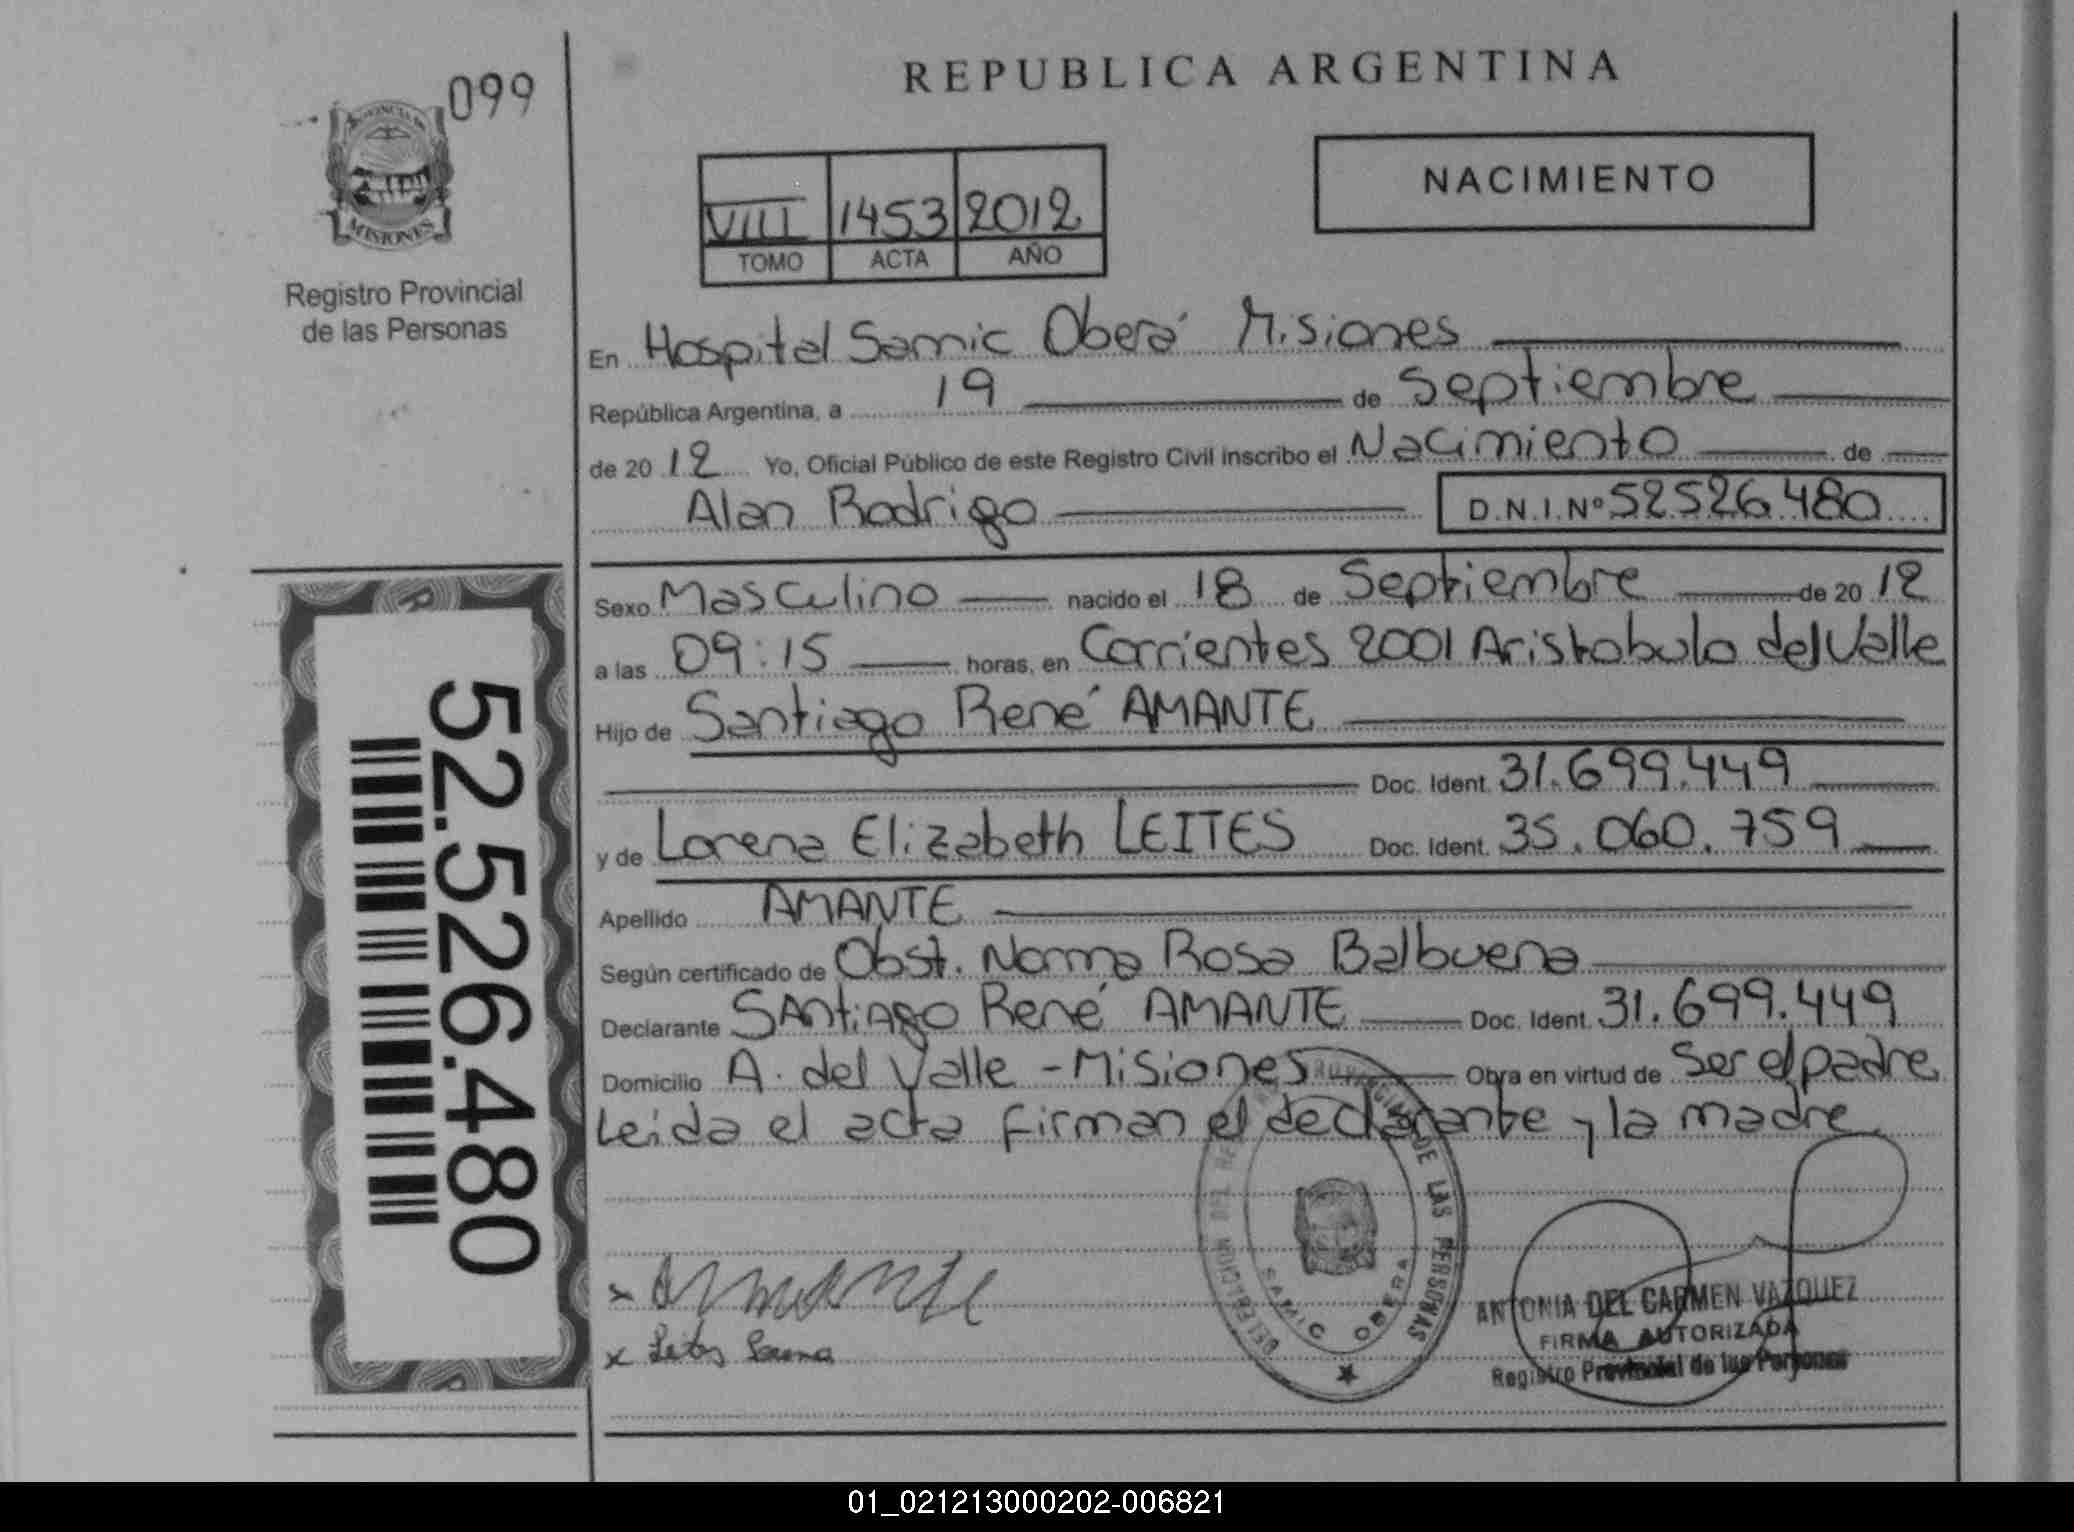 099
PROVINCIA DE
MISIONES
Registro Provincial
de las Personas
REPUBLICA ARGENTINA
NACIMIENTO
VIII 1453 2012
TOMO ACTA AÑO
En Hospital Samic Oberá Misiones
República Argentina, a 19 de Septiembre
de 2012 Yo, Oficial Público de este Registro Civil inscribo el Nacimiento de
Alan Rodrigo D.N.I.Nº 52.526.480
Sexo Masculino nacido el 18 de Septiembre de 2012
a las 09:15 horas, en Corrientes 2001 Aristobulo del Valle
Hijo de Santiago René AMANTE
Doc. Ident. 31.699.449
y de Lorena Elizabeth LEITES Doc. Ident. 35.060.759
Apellido AMANTE
Según certificado de Obst. Norma Rosa Balbuena
Declarante SAntiAgo René AMANTE Doc. Ident. 31.699.449
Domicilio A. del Valle - Misiones Obra en virtud de Ser el padre
Leida el acta firman el declarante y la madre.
52.526.480
x Amante
x Leites Lorena
DE LAS PERSONAS
SAMIC OBERA
ANTONIA DEL CARMEN VAZQUEZ
FIRMA AUTORIZADA
Registro Provincial de las Personas
01_021213000202-006821